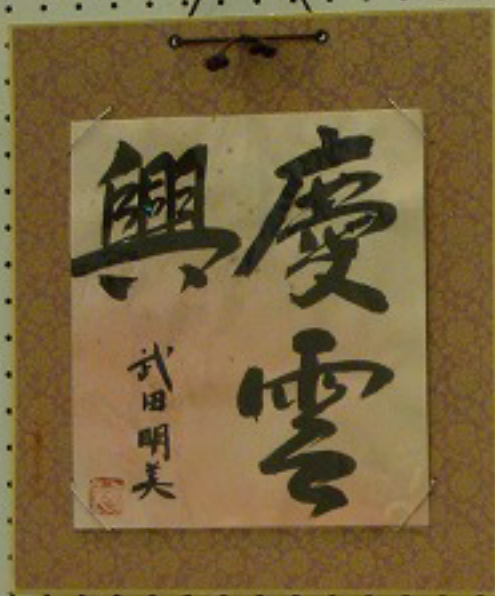 慶雲
興
武田明美